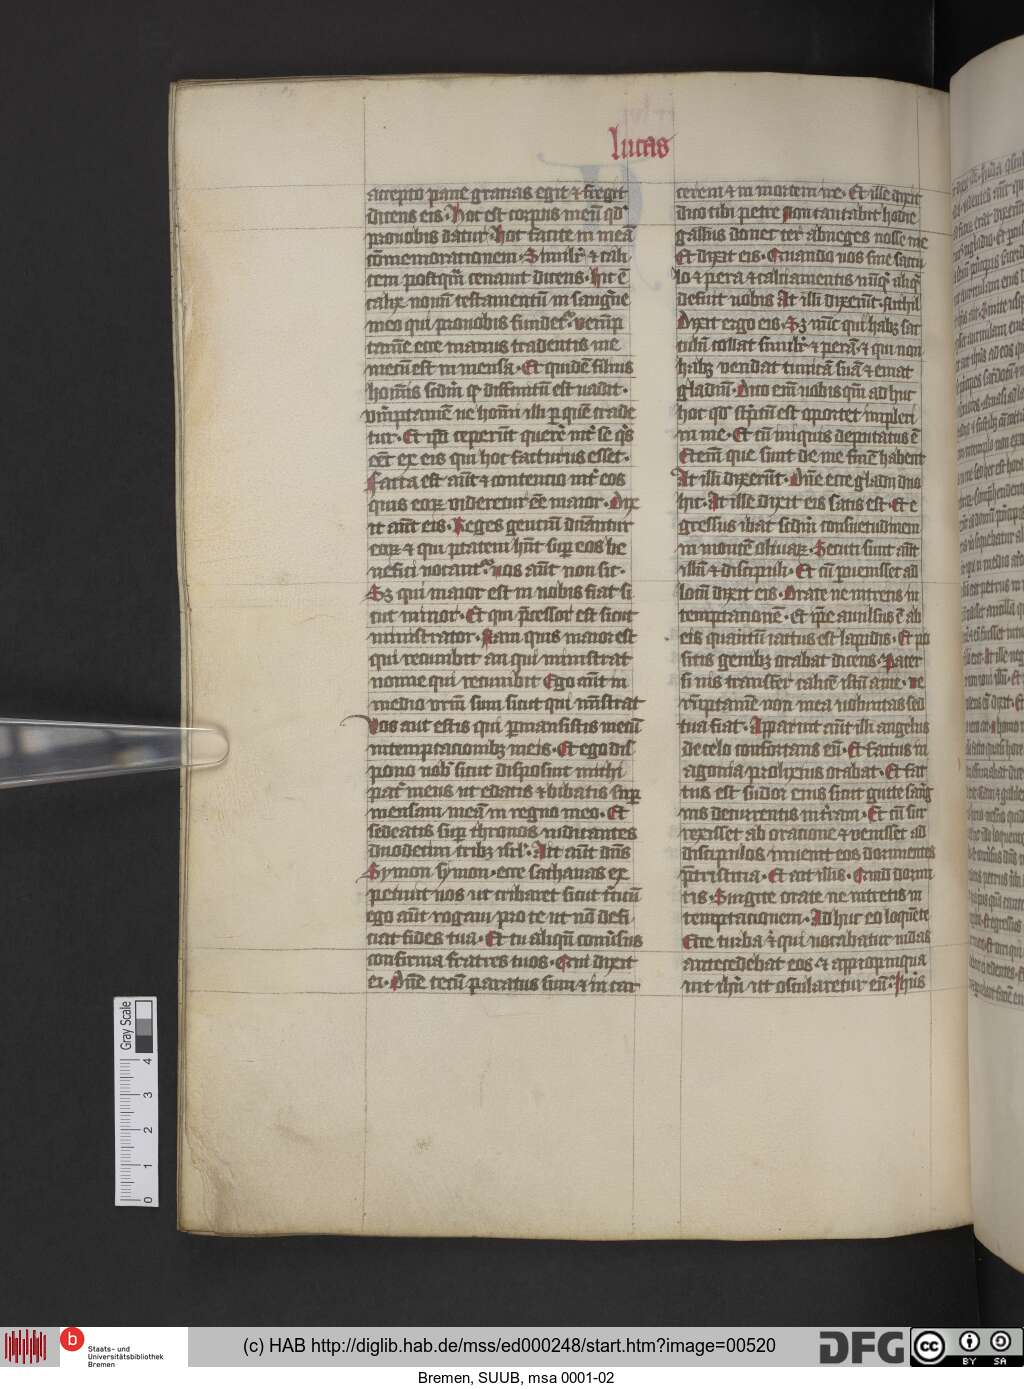 lucas
accepto pane gratias egit ⁊ fregit
dicens eis. Hoc est corpus meū qd̕
pro uobis datur. Hoc facite in meā
cōmemorationem. Simil̕r ⁊ cali
cem postq̄m cenauit dicens. Hic ē
calix nouū testamentū in sangīne
meo qui pro uobis fundet᷑. verūp
tamē ecce manus tradentis me
mecū est in mensa. Et quidē filius
hoīnis scd̄m qd̕ diffinitū est uadit.
vm̄ptamē ve homī illi p quē trade
tur. Et ip̄i ceperūt querē int̕ se q̄s
eēt ex eis qui hoc facturus esset.
Facta est aūt ⁊ contentio int̕ eos
quis eoꝝ videretur eē maior. Dix
it aūt eis. Reges gentiū dn̄antur
eoꝝ ⁊ qui ptatem hn̄t sup eos be
nefici uocant᷑. vos aūt non sic.
Sꝫ qui maior est in uobis fiat si
cut minor. Et qui p̄cessor est sicut
ministrator. Nam quis maior est
qui recumbit an qui ministrat
nonne qui recumbit Ego aūt in
medio vrm̄ sum sicut qui mīstrat
Vos aut estis qui pmansistis mecū
in temptacionibꝫ meis. Et ego dis
pono uob̕ sicut disposuit michi
pat̕ meus ut edatis ⁊ bibatis sup
mensam meā in regno meo. Et
sedeatis sup thronos iudicantes
duodecim tribꝫ isrl̕. Ait aūt dn̄s
Symon symon. ecce sathanas ex
petiuit uos ut cribaret sicut t̕ticū
ego aūt rogaui pro te ut nō defi
ciat fides tua. Et tu aliqn̄ conūsus
confirma fratres tuos. Qui dixit
ei. Dn̄e tecū paratus sum ⁊ in car
cerem ⁊ in mortem ire. Et ille dixit
Dico tibi petre Non cantabit hodie
gallus donec ter abneges nosse me
Et dixit eis. Quando uos sine saccu
lo ⁊ pera ⁊ calciamentis nūq̄ aliq̄
defuit uobis At illi dixerūt. Nichil
Dixit ergo eis. Sꝫ nūc qui habꝫ sac
culū tollat simil̕r ⁊ perā. ⁊ qui non
habꝫ vendat tunicā suā ⁊ emat
gladiū. Dico eī uobis qm̄ ad huc
hoc qd̕ sc̕ptū est oportet impleri
in me. Et cū iniquis deputatus ē
Etenī que sunt de me finē habent
At illi dixerūt. Dn̄e ecce gladii duo
hic. At ille dixit eis satis est. Et e
gressus ibat scd̄m consuetudinem
in montē oliuaꝝ. Secuti sunt aūt
illū ⁊ discipuli. Et cū puenisset ad
locū dixit eis. Orate ne intretis in
temptationē. Et ip̄e auulsus ē ab
eis quantū iactus est lapidis. Et po
sitis genibꝫ orabat dicens. Pater
si uis transfer calicē istū a me. ve
rūptamē non mea voluntas sed
tua fiat. Apparuit aūt illi angelus
de celo confortans eū. Et factus in
agonia prolixius orabat. Et fac
tus est sudor eius sicut gutte sang̕
nis decurrentis in t̕ram. Et cū sur
rexisset ab oratione ⁊ venisset ad
discipulos inuenit eos dormientes
p̄ tristicia. Et ait illis. Quid dormi
tis. Surgite orate ne intretis in
temptacionem. Ad huc eo loquēte
Ecce turba ⁊ qui uocabatur iudas
antecedebat eos ⁊ appropinqua
uit ih̄u ut oscularetur eū. Ih̄us
Gray Scale
4
3
2
1
0
Staats- und
Universitätsbibliothek
Bremen
(c) HAB http://diglib.hab.de/mss/ed000248/start.htm?image=00520
DFG
cc
BY SA
Bremen, SUUB, msa 0001-02